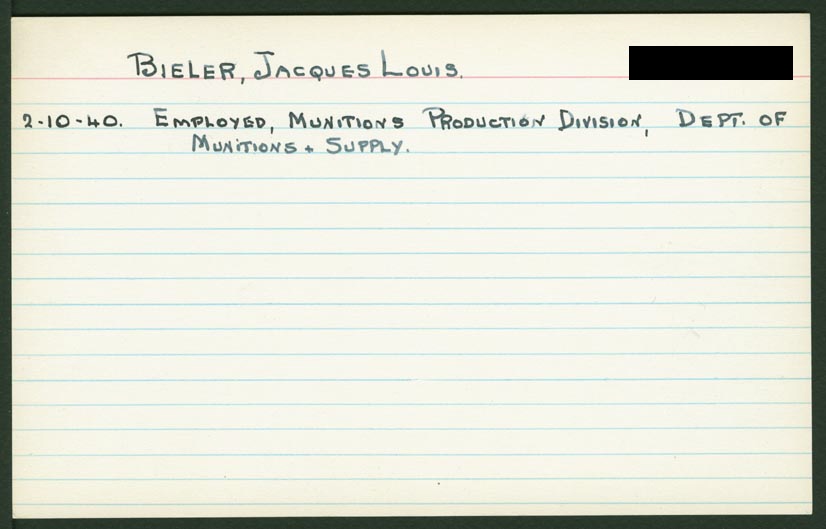 BIELER, JACQUES LOUIS.
2-10-40. EMPLOYED, MUNITIONS PRODUCTION DIVISION, DEPT. OF
MUNITIONS + SUPPLY.